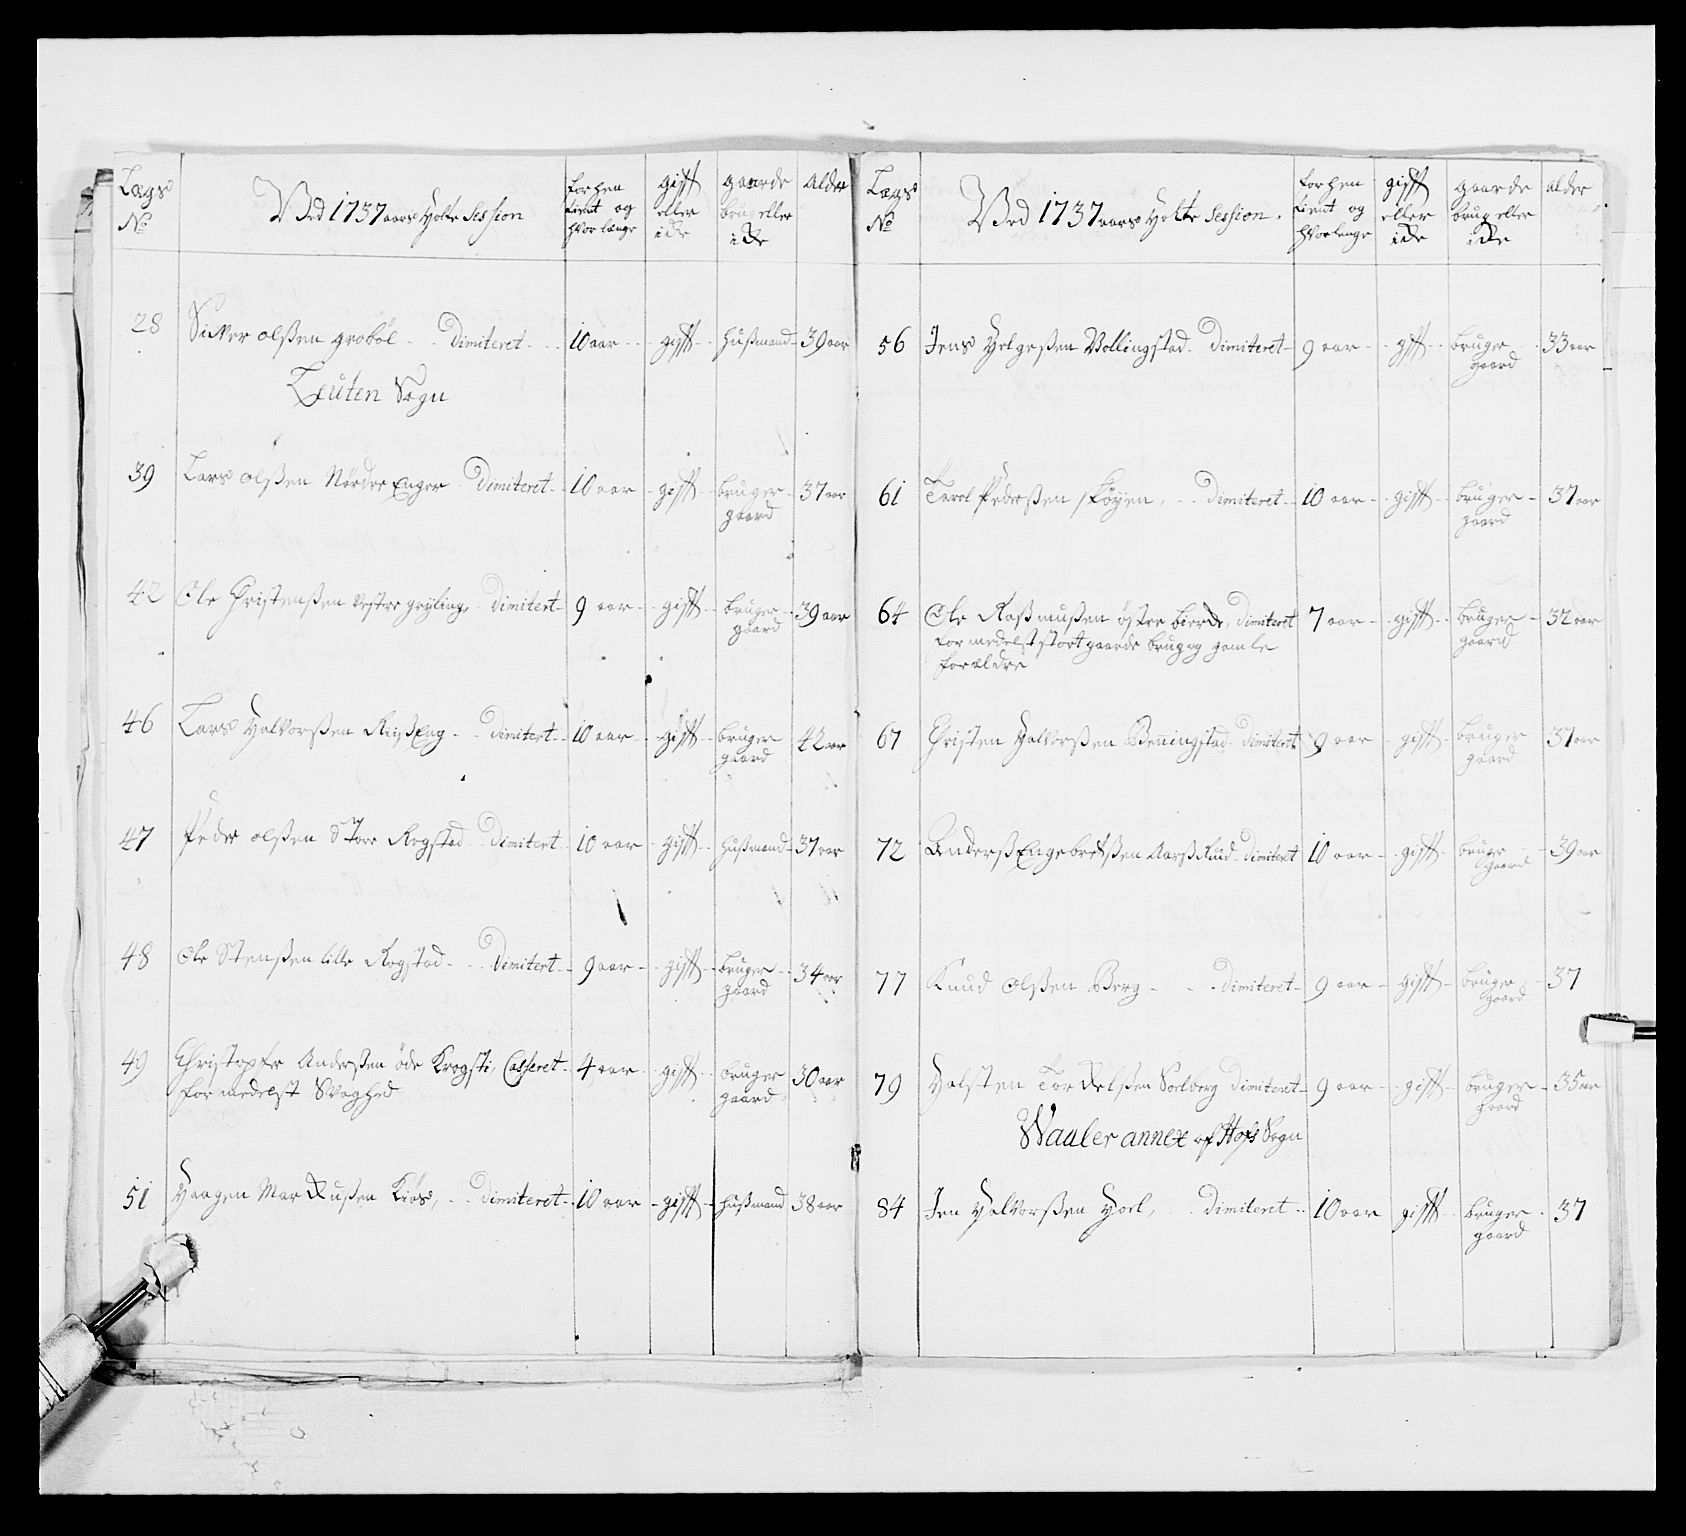 Lægs No Ved 1737 aars Holte Session forhen tient og hvorlænge gifft eller icke gaarde brug eller icke alder
28 Siver olßen grobøl Dimiteret 10 aar gifft hußmand 39 aar
Leuten Sogn
39 Lars olßen Nordre Enger Dimiteret 10 aar gifft bruger gaard 37 aar
42 Ole Christenßen Vestre grÿling Dimitert 9 aar gifft bruger gaard 39 aar
46 Lars Halvorßen RiißEng Dimitert 10 aar gifft bruger gaard 42 aar
47 Peder olßen Store Rogstad Dimitert 10 aar gifft hußmand 37 aar
48 Ole Stenßen lille Rogstad Dimitert 9 aar gifft bruger gaard 34 aar
49 Christopfer Anderßen öde Krogsti, Casseret 4 aar gifft bruger gaard 30 aar
formedelst Svaghed
51 Haagen Marckußen Kiøs, Dimiteret 10 aar gifft hußmand 38 aar
Lægs No Ved 1737 aars Holte Session. forhen tient og hvorlenge gifft eller icke gaarde brug eller icke alder
56 Jens Helgeßen Vollingstad Dimiteret 9 aar gifft bruger gaard 33 aar
61 Tarel Pederßen skøyen, Dimiteret 10 aar gifft bruger gaard 37 aar
64 Ole Raßmußen östre bierche, Dimiteret 7 aar gifft bruger gaard 32 aar
formedelst stort gaarde brug og gamle
forældre
67 Christen Halvorßen Benningstad Dimiteret 9 aar gifft bruger gaard 37 aar
72 Anderß Engebretßen AarßRud Dimitert 10 aar gifft bruger gaard 39 aar
77 Knud olßen Berg Dimiteret 9 aar gifft bruger gaard 37
79 Halsten Torckelßen Soelberg Dimiteret 9 aar gifft bruger gaard 35 aar
Waaler annex af Hofs Sogn
84 Jen Halvorßen Hoel, Dimiteret 10 aar gifft bruger gaard 37